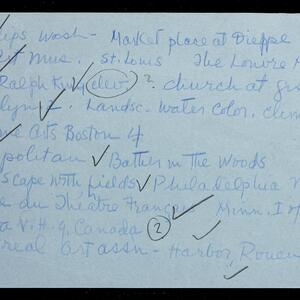 lips Wash - Market place at Dieppe
Art Mus. St. Louis The Louvre M
Ralph King (Clev) ? church at gr
klyn 2. Landsc. Water Color, clem
ne Arts Boston 4
politan ✓ Bather in the Woods
scape with fields ✓ Philadelphia
e du Théâtre Français Minn. I of
a N.H.G. Canada (2)
real Art assn - Harbor, Rouen